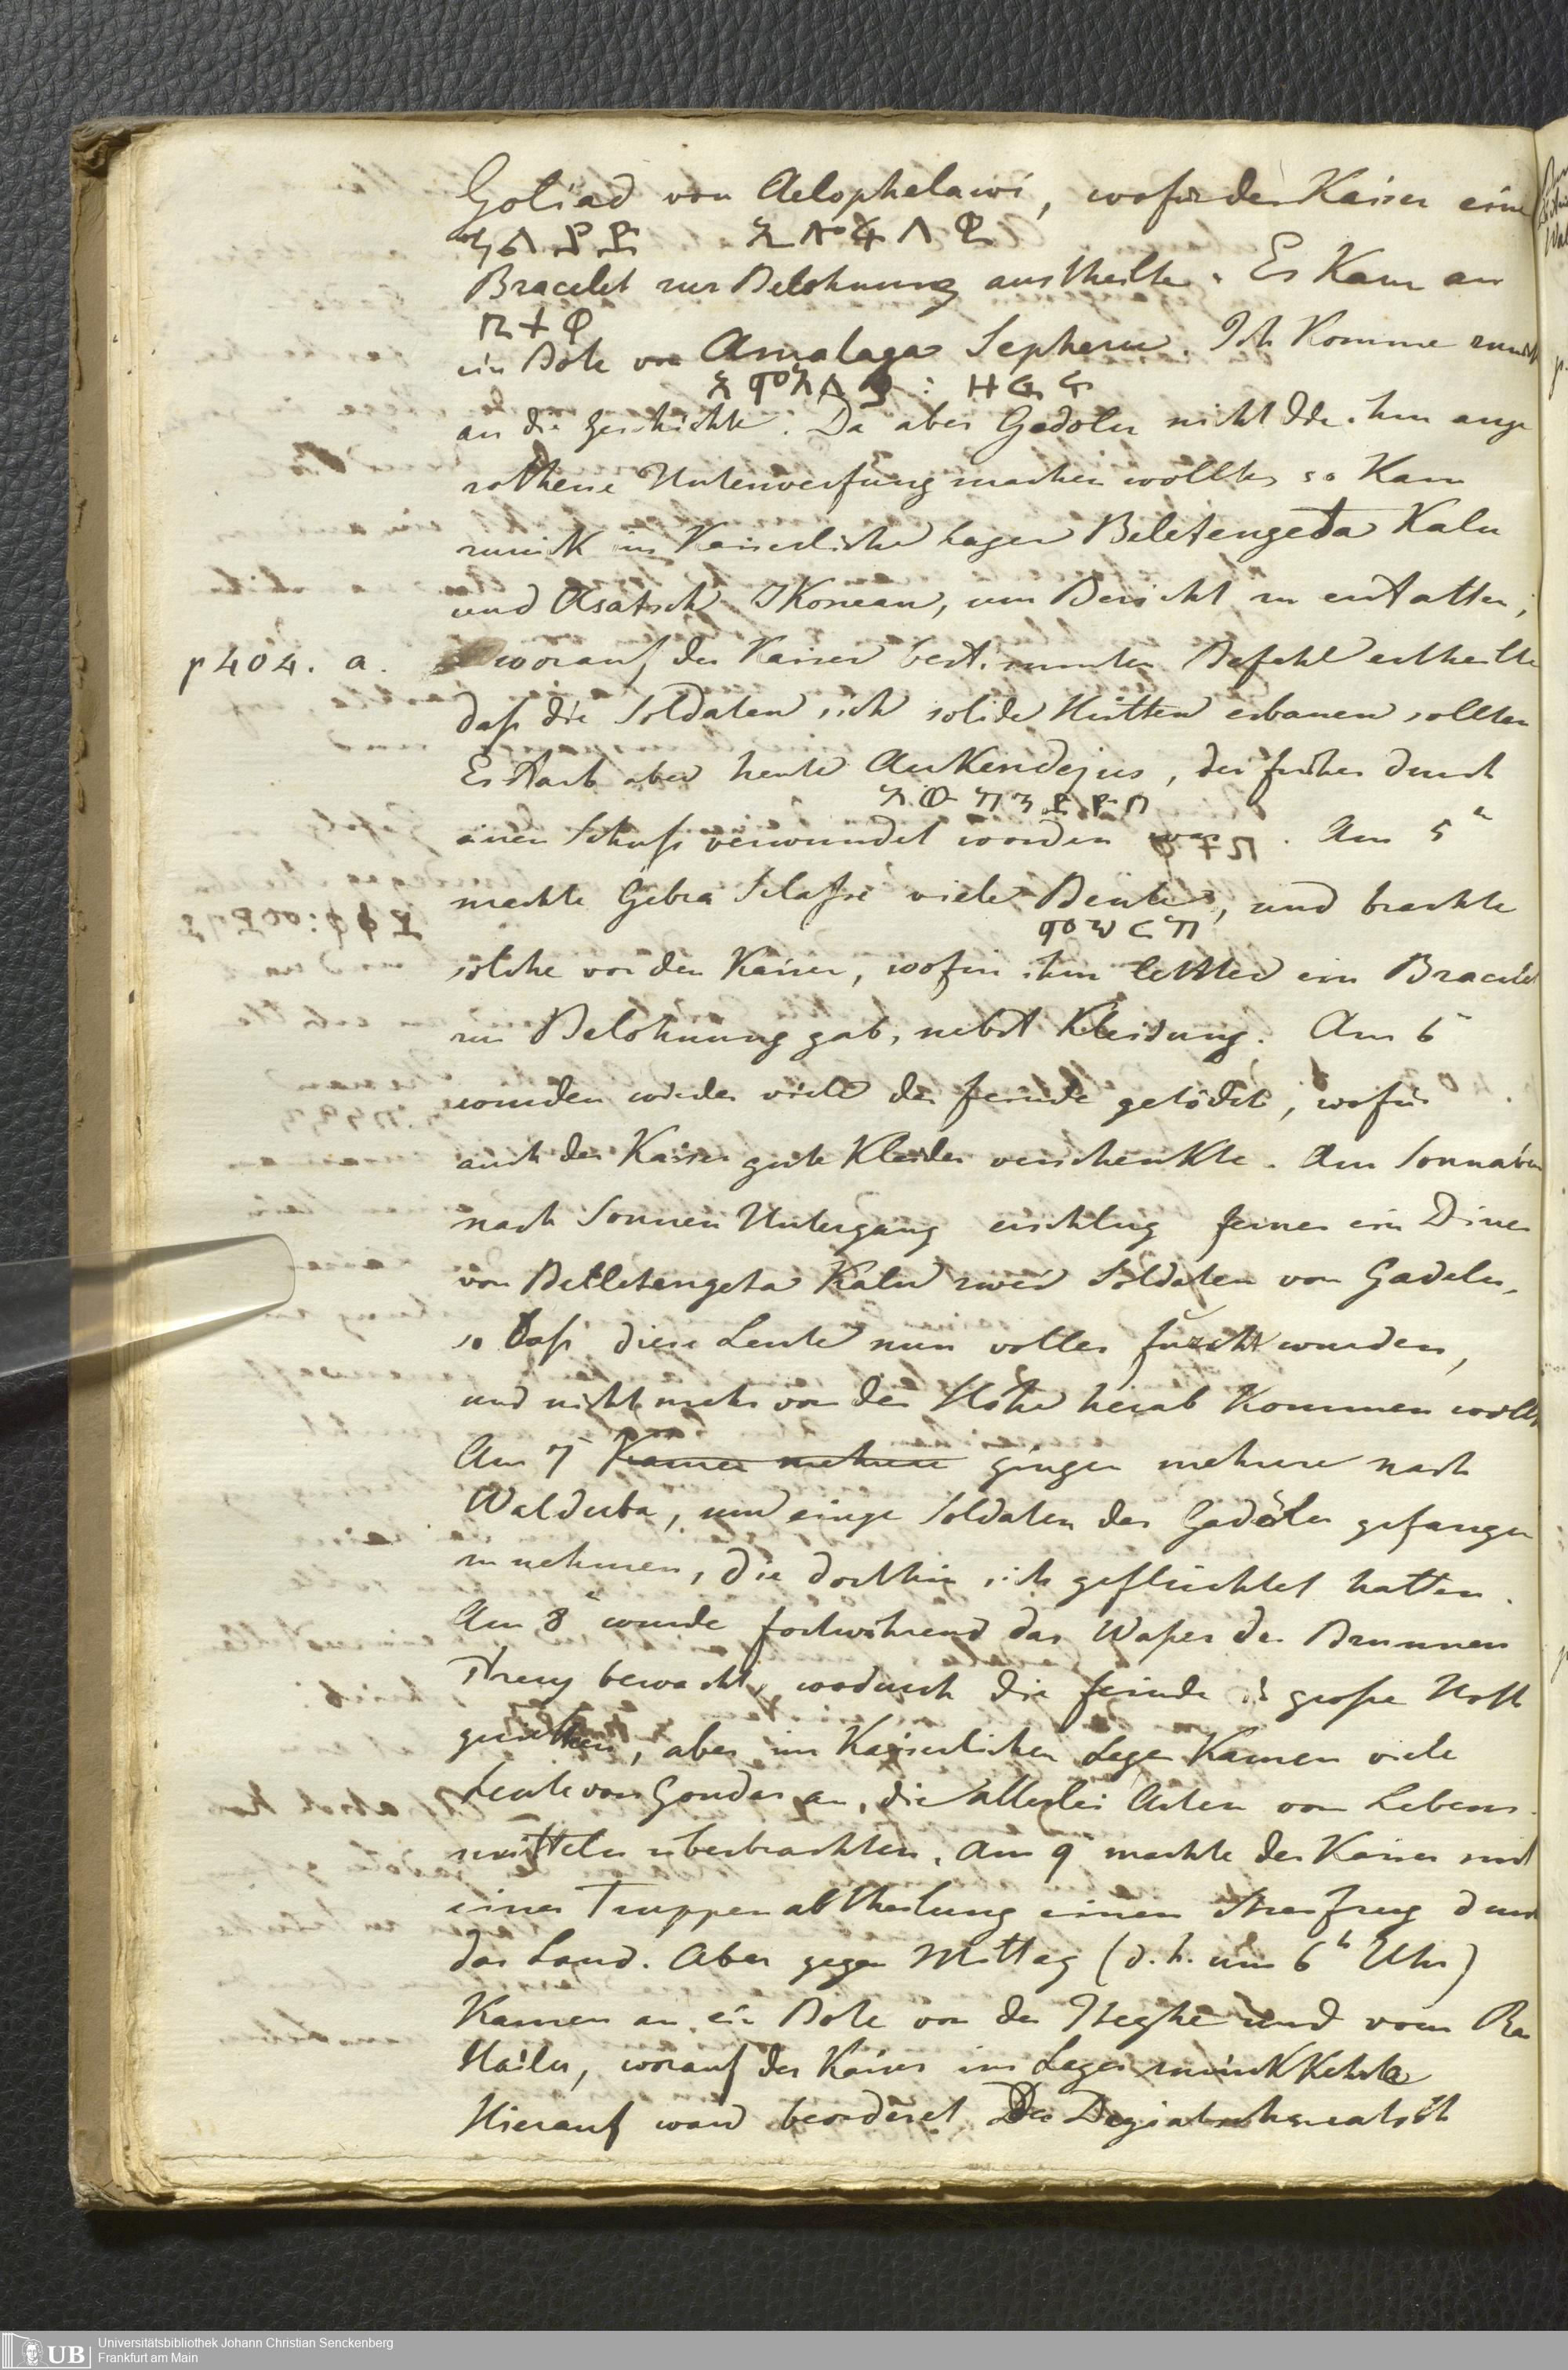 Goliad von Aelophelawi, wofür der Kaiser eine
Bracelet zur Belohnung austheilte. Es kam an
ein Bote von Amalaga Sepheru. Ich komme zurück
an die Geschichte. Da aber Gedolu nicht die ihm ange
rathene Unterwerfung machen wollte, so kam
zurück ins Kaiserliche Lager Beletengeta Kalu
und Asatsch Ikonean, um Bericht zu erstatten;
p 404. a. worauf der Kaiser bestimmten Befehl ertheilte
daß die Soldaten sich solide Hütten erbauen sollten
Es starb aber heute Aukendejus, der früher durch
einen Schuß verwundet worden war. Am 5ⁿ
machte Gebra Selaſse viele Beute, und brachte
solche vor den Kaiser, wofür ihm letzter ein Bracelet
zur Belohnung gab, nebst Kleidung. Am 6
wurden wieder viele der Feinde getödtet, wofür
auch der Kaiser gute Kleider verschenkte. Am Sonnabend
nach Sonnen Untergang erschlug ferner ein Diner
von Belletengeta Kalu zwei Soldaten von Gadelu,
so daß diese Leute nun voller Furcht wurden,
und nicht mehr von der Höhe herab kommen wollt
Am 7 Kamen mehrere gingen mehrere nach
Walduba, um einige Soldaten des Gadolu gefangen
zu nehmen, die dorthin sich geflüchtet hatten.
Am 8ⁿ wurde fortwährend das Waßer der Brunnen
streng bewacht, wodurch die Feinde in große Noth
geriethen, aber im Kaiserlichen Lager kamen viele
Leute von Gondar an, die allerlei Arten von Lebens
mitteln überbrachten. Am 9 machte der Kaiser mit
einer Truppenabtheilung einen Streifzug durch
das Land. Aber gegen Mittag (d. h. um 6ʰ Uhr)
Kamen an ein Bote von der Iteghe und vom Ras
Hailu, worauf der Kaiser ins Lager zurückkehrte
Hierauf ward beordert Der